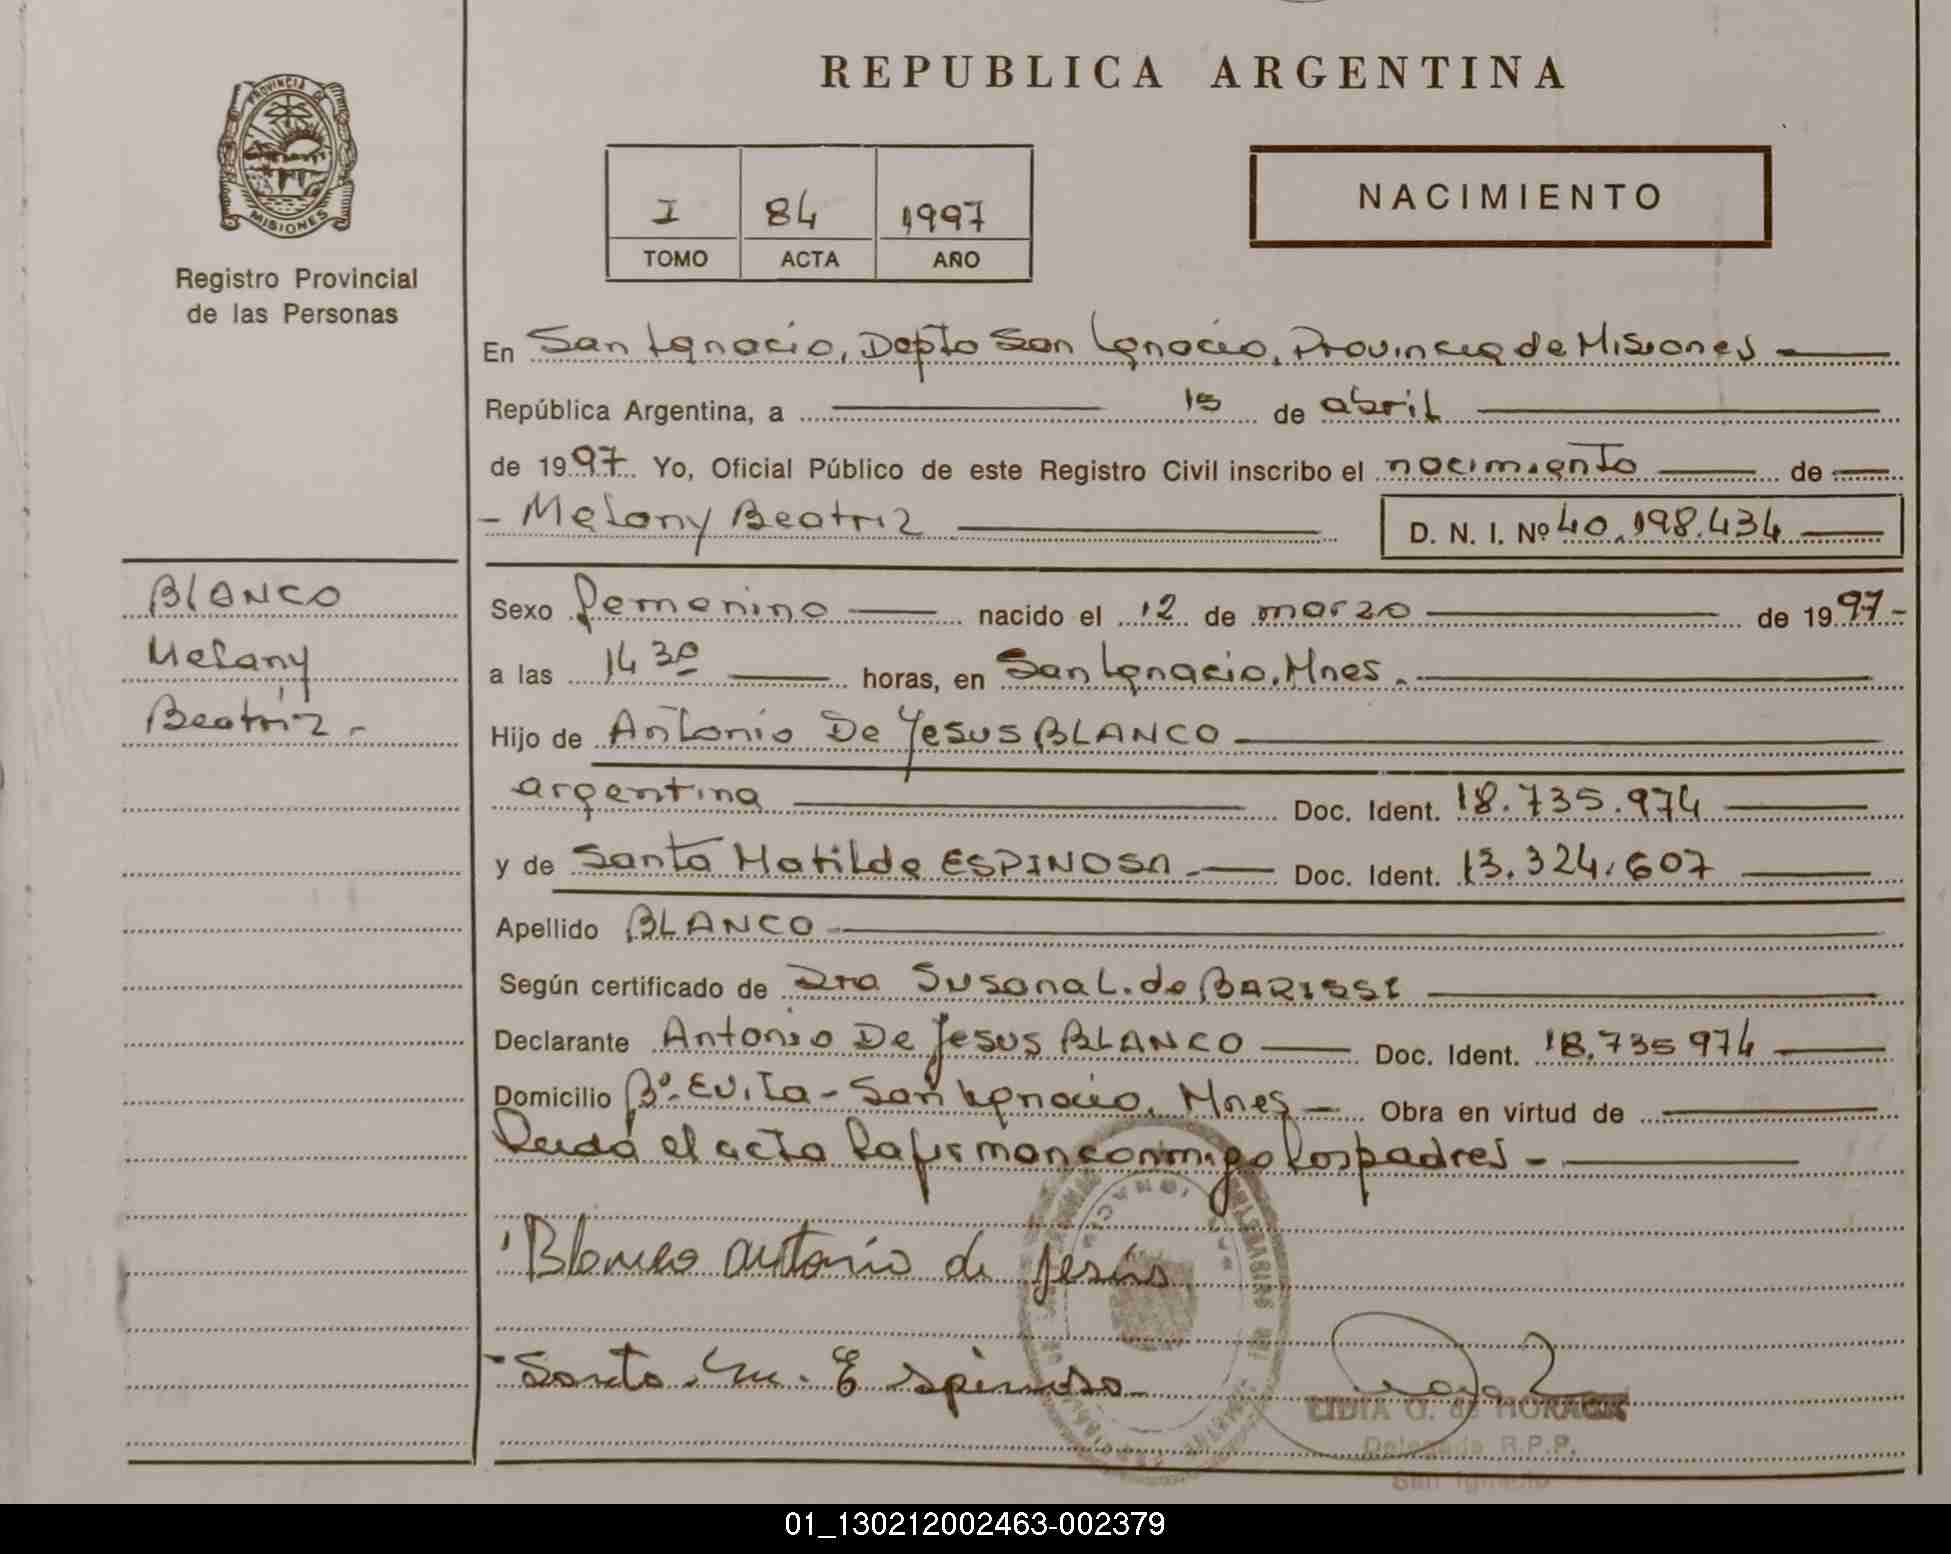 REPUBLICA ARGENTINA
PROVINCIA DE
MISIONES
Registro Provincial
de las Personas
I 84 1997
TOMO ACTA AÑO
NACIMIENTO
En San Ignacio, Depto San Ignacio, Provincia de Misiones
República Argentina, a 15 de abril
de 1997 Yo, Oficial Público de este Registro Civil inscribo el nacimiento de
- Melany Beatriz D. N. I. Nº 40.198.434
BLANCO
Melany
Beatriz -
Sexo femenino nacido el 12 de marzo de 1997-
a las 14 30 horas, en San Ignacio, Mnes.
Hijo de Antonio De Jesus BLANCO
argentina Doc. Ident. 18.735.974
y de Santa Matilde ESPINOSA Doc. Ident. 13.324.607
Apellido BLANCO
Según certificado de Dra Susana L. de BARISSI
Declarante Antonio De Jesus BLANCO Doc. Ident. 18.735 974
Domicilio Bº. Evita - San Ignacio, Mnes - Obra en virtud de
Leida el acta la firman conmigo los padres -
Blanco antonio de Jesús
Santa . M . Espinosa
LIDIA O. de HORACK
Delegada R.P.P.
San Ignacio
01_130212002463-002379